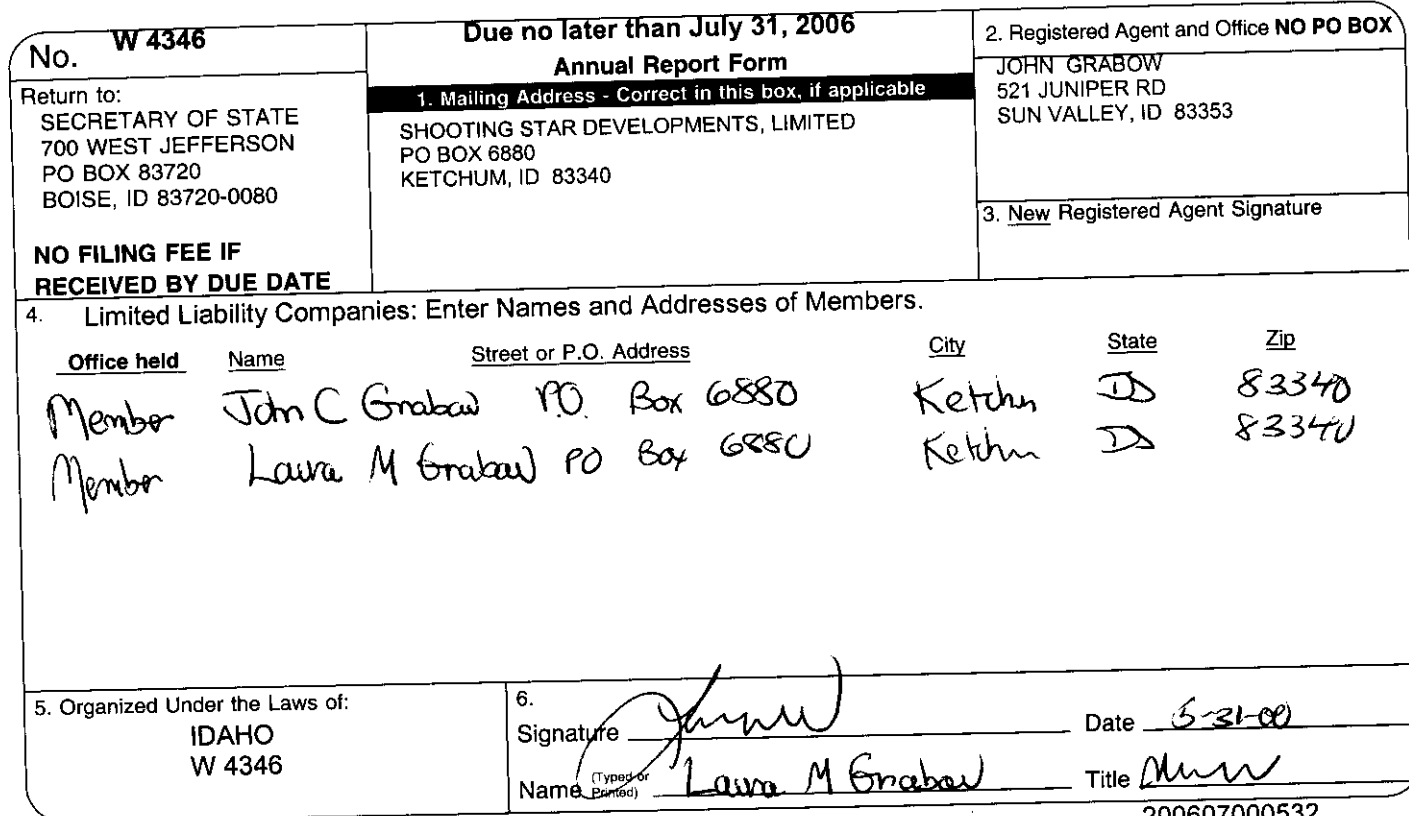 No. W 4346
Return to:
SECRETARY OF STATE
700 WEST JEFFERSON
PO BOX 83720
BOISE, ID 83720-0080
NO FILING FEE IF
RECEIVED BY DUE DATE
Due no later than July 31, 2006
Annual Report Form
1. Mailing Address - Correct in this box, if applicable
SHOOTING STAR DEVELOPMENTS, LIMITED
PO BOX 6880
KETCHUM, ID 83340
2. Registered Agent and Office NO PO BOX
JOHN GRABOW
521 JUNIPER RD
SUN VALLEY, ID 83353
3. New Registered Agent Signature
4. Limited Liability Companies: Enter Names and Addresses of Members.
Office held Name Street or P.O. Address City State Zip
Member John C Grabow P.O. Box 6880 Ketchum ID 83340
Member Laura M Grabow PO Box 6880 Ketchum ID 83340
5. Organized Under the Laws of:
IDAHO
W 4346
6.
Signature Date 5-31-
Name (Typed or Printed) Laura M Grabow Title
200607000532